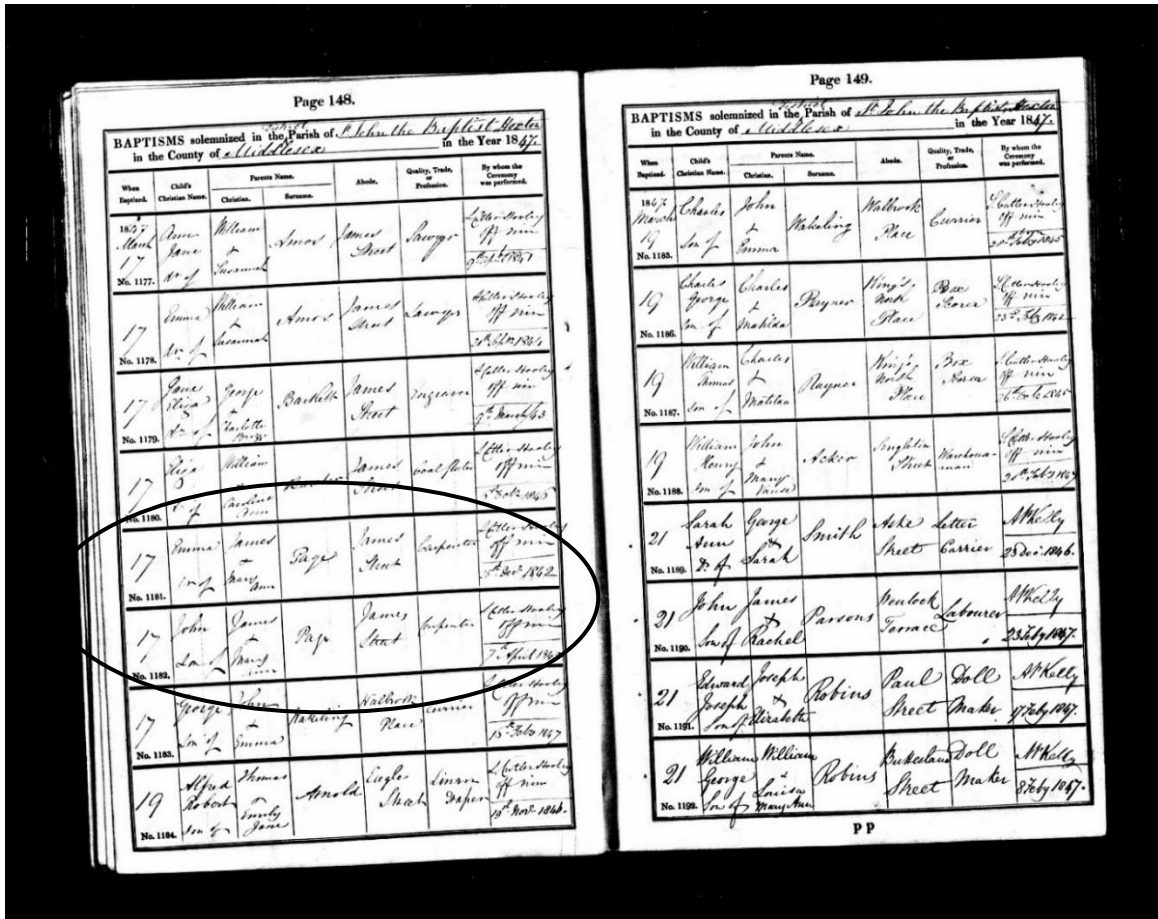 Page 148.
BAPTISMS solemnized in the District Parish of St John the Baptist Hoxton
in the County of Middlesex in the Year 1847.
When Baptized. Child's Christian Name. Parents Name. Christian. Surname. Abode. Quality, Trade, or Profession. By whom the Ceremony was performed.
1847 March 17 No. 1177. Ann Jane dr of William & Susannah Amos James Street Sawyer off min
17 No. 1178. Emma dr of William & Susannah Amos James Street Sawyer off min
17 No. 1179. Jane Eliza dr of George & Charlotte James Street Engraver off min 9th March /43
17 No. 1180. Eliza dr of William & Caroline Ann James Street off min
17 No. 1181. Emma dr of James & Mary Ann Page James Street Carpenter off min 1842
17 No. 1182. John Son of James & Mary Ann Page James Street Carpenter off min 7th April
17 No. 1183. George Son of John & Emma Wakeling Walbrook Place Currier off min 15th Feby 1847
19 No. 1184. Alfred Robert Son of Thomas & Emily Jane Arnold Eagle Street Linen Draper off min 19th Novr 1846.
Page 149.
BAPTISMS solemnized in the District Parish of St John the Baptist Hoxton
in the County of Middlesex in the Year 1847.
When Baptized. Child's Christian Name. Parents Name. Christian. Surname. Abode. Quality, Trade, or Profession. By whom the Ceremony was performed.
1847 March 19 No. 1185. Charles Son of John & Emma Wakeling Walbrook Place Currier off min
19 No. 1186. Charles George Son of Charles & Matilda Rayner King's North Place Box off min 23rd Feby 1842
19 No. 1187. William Thomas Son of Charles & Matilda Rayner King's North Place Box off min 1845
19 No. 1188. William Henry Son of John & Mary Acker Singleton Street Warehouseman off min 1847
21 No. 1189. Sarah Ann Dr of George & Sarah Smith Ashe Street Letter Carrier AP Kelly 25 Dec 1846.
21 No. 1190. John Son of James & Rachel Parsons Wenlock Terrace Labourer AP Kelly 23 Feby 1847.
21 No. 1191. Edward Joseph Son of Joseph & Elizabeth Robins Paul Street Doll Maker AP Kelly 17 Feby 1847.
21 No. 1192. William George Son of William & Louisa Mary Ann Robins Street Doll Maker AP Kelly 8 Feby 1847.
P P